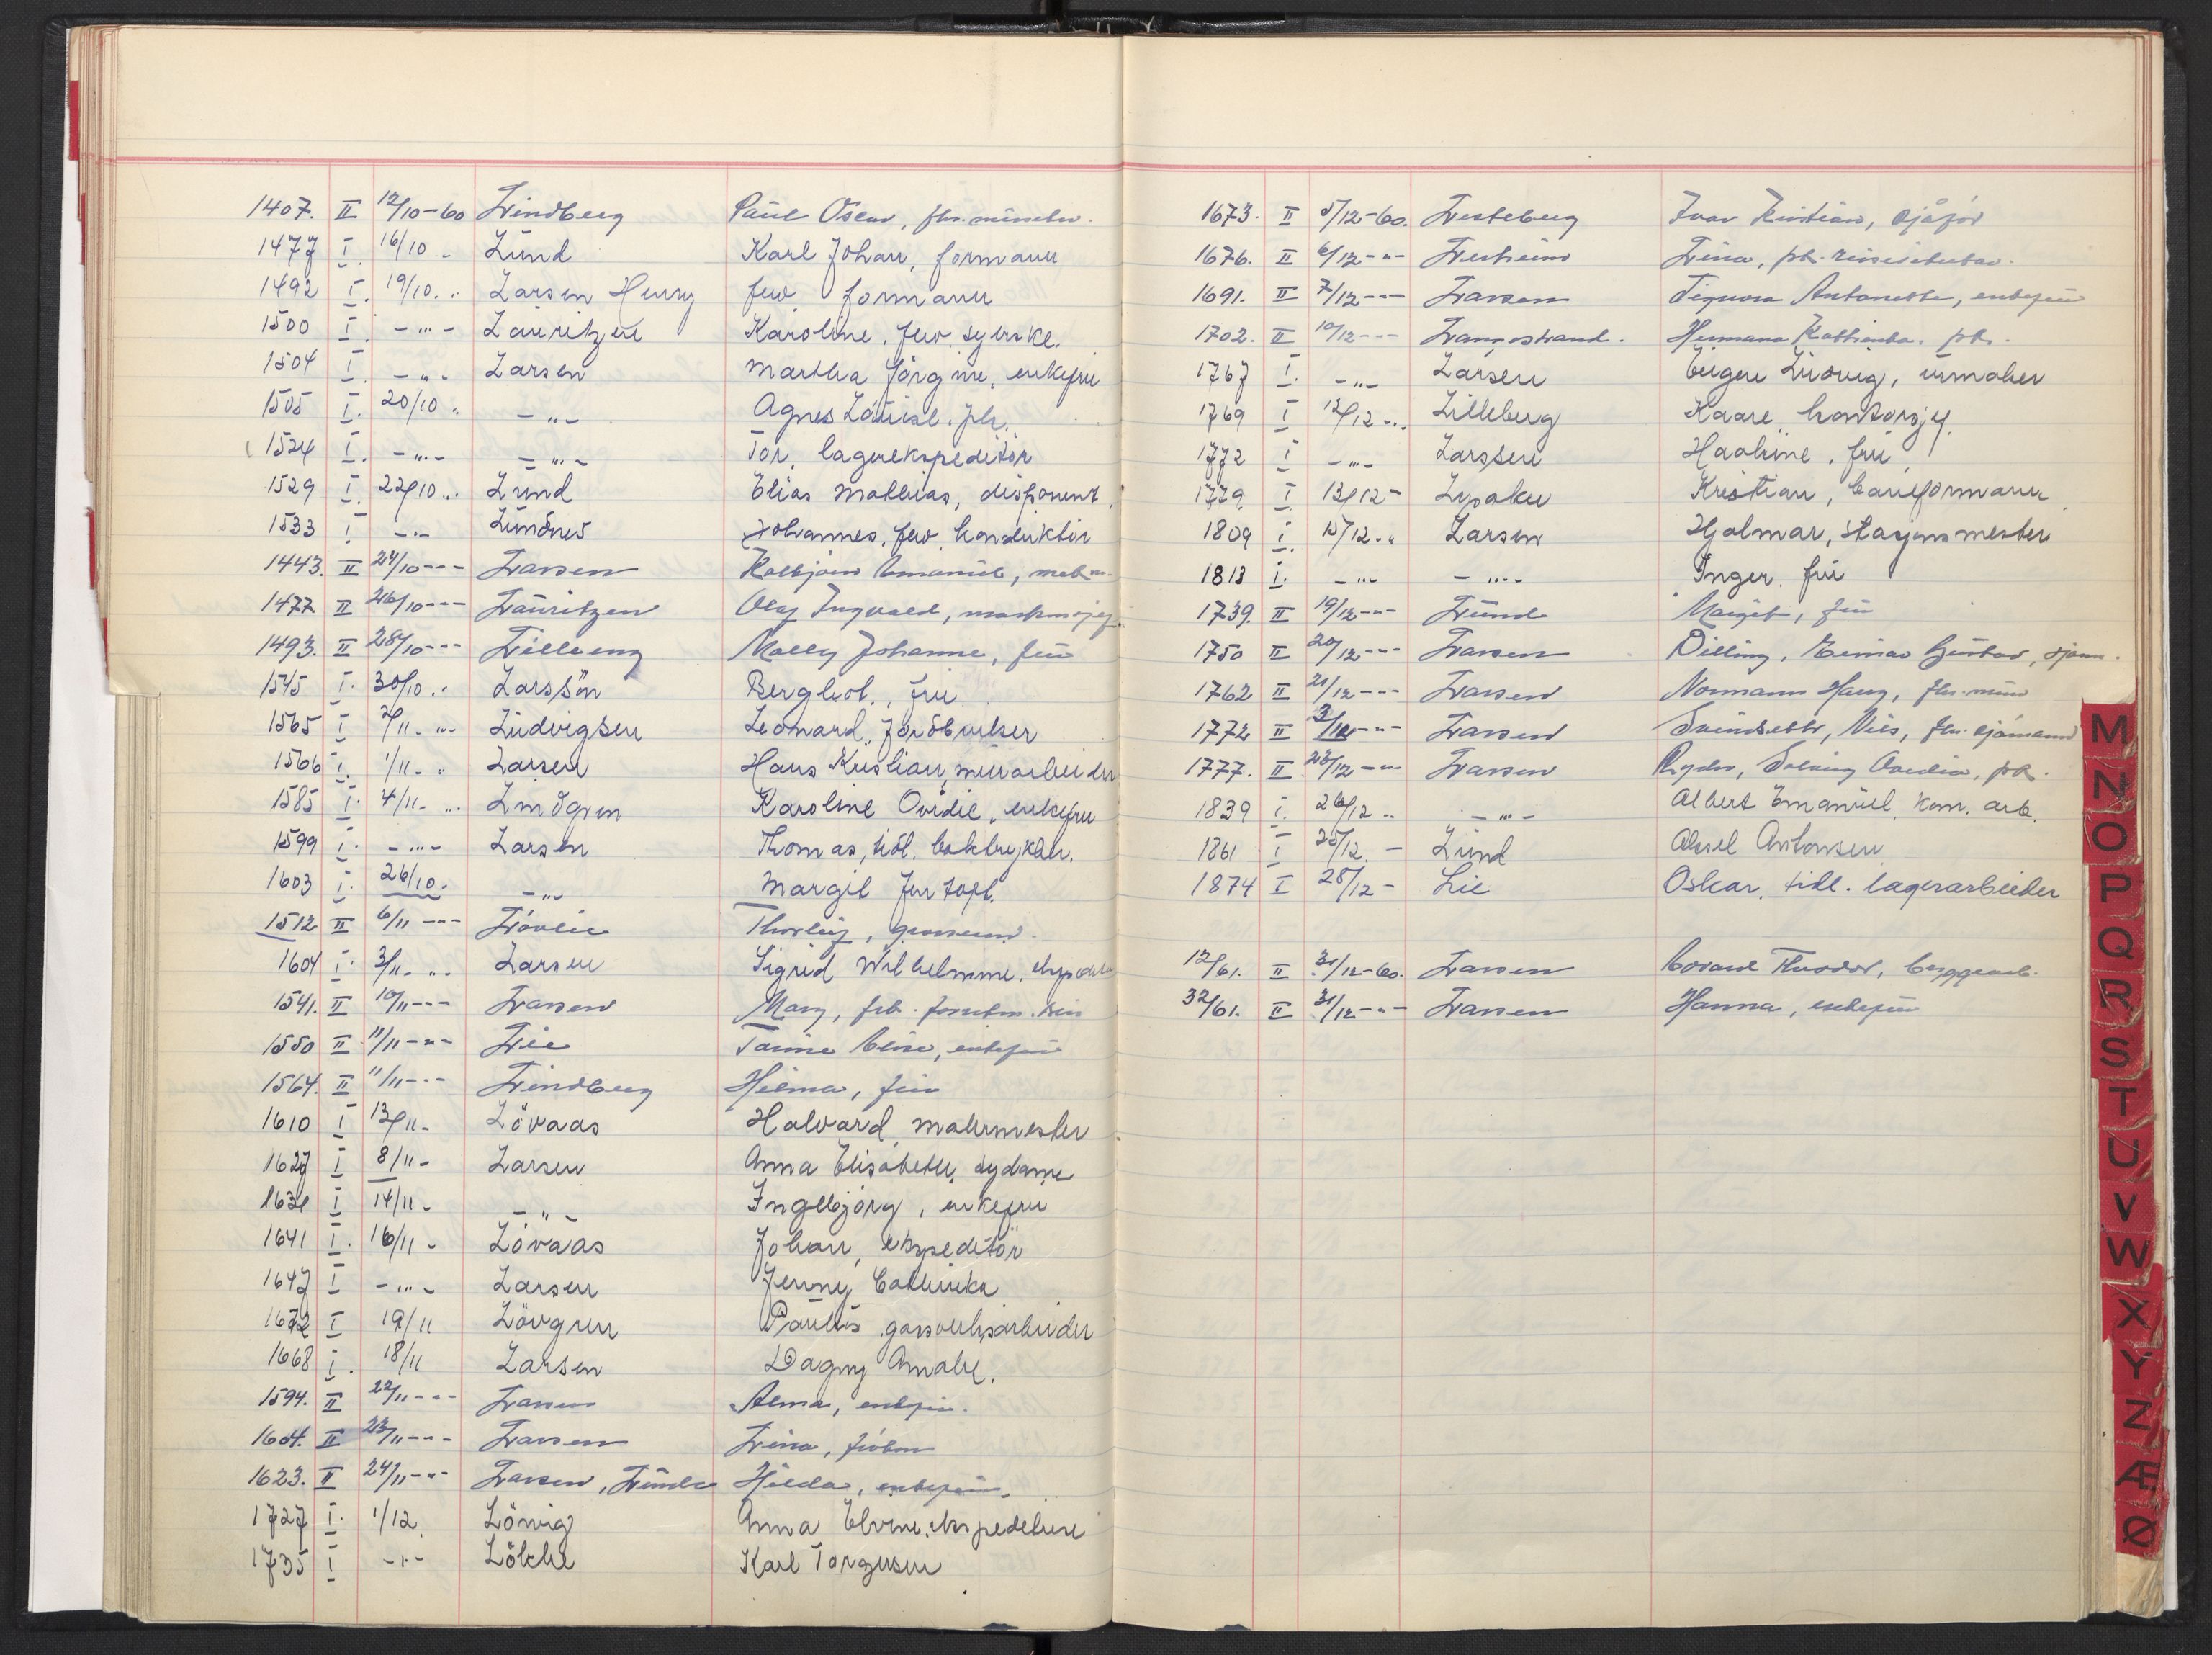 1407. II 12/10-60 Lindberg Paul Oscar, fhv.
1477 I. 16/10 „ Lund Karl Johan, formann
1492 I. 19/10. „ Larsen Henry fhv formann
1500 I. -„- Lauritzen Karoline, fhv. syerske.
1504 I. -„- Larsen Martha Jörgine, enkefru
1505 I. 20/10 „ -„- Agnes Louise, frk.
1524 I. -„- -„- Tor, lagerekspeditör
1529 I. 22/10 „ Lund Elias Mathias, disponent
1533 I -„- Lundnes Johannes, fhv. konduktör
1443. II 24/10-„- Larsen Kolbjörn Emanuel, mek
1477 II 26/10-„- Lauritzen Olaf Ingvald, maskinsjef
1493. II 28/10-„- Lilleeng Molly Johanne, frue
1545 I. 30/10 „ Larssön Bergliot, fru
1565 I 2/11- „ Ludvigsen Leonard,
1566 I. 1/11- „ Larsen Hans Kristian, murarbeider
1585 I. 4/11- „ Lindgren Karoline Ovidie, enkefru
1599 I. -„- Larsen Thomas, tidl.
1603 I. 26/10- -„- Margit
1512 II 6/11-„- Lövlie Thorleif,
1604 I. 3/11- „ Larsen Sigrid Wilhelmine,
1541. II 10/11-„- Larsen Mary, frk.
1550 II 11/11-„- Lie enkefrue
1564. II 11/11-„- Lindberg Hilma, frue
1610 I 13/11- Lövaas Halvard, malermester
1627 I 8/11- Larsen Anna Elisabeth, sydame
1631 I 14/11- -„- Ingebjörg, enkefru
1641 I. 16/11- Lövaas Johan, ekspeditör
1647 I -„- Larsen Jenny Cathinka
1672 I 19/11 Lövgren Paulus, gassverksarbeider
1668 I. 18/11 Larsen Dagny Amalie.
1594. II 22/11-„- Larsen Alma, enkefru.
1604. II 23/11-„- Larsen Lina, fröken
1623. II 24/11-„- Larsen, Hilda, enkefrue.
1727 I. 1/12 Lönvig Anna
1735 I -„- Karl Torgersen
1673. II 5/12-60. Lesteberg Ivar Kristian, sjåför
1676. II 6/12-„- Lina, frk.
1691. II 7/12-„- Larsen Signora Antonette, enkefrue
1702. II 10/12-„- Langestrand. Hermana Kathinka. frk.
1767 I. -„- Larsen Eugen Ludvig, urmaker
1769 I 12/12 „ Lilleberg Kaare, kontorsjef.
1772 I -„- Larssen fru
1779 I 13/12- Lysaker Kristian, baneformann
1809 I. 15/12 „ Larsen Hjalmar, stasjonsmester
1813 I. -„- -„- Inger. fru
1739. II 19/12-„- Lund Margit, frue
1750 II 20/12-„- Larsen Dilling, Einar Gustav, sjøm.
1762 II 21/12-„- Larsen Normann Harry, fhv.
1772 II -„- Larsen Svindseth, Nils, fhv. sjömann
1777. II 23/12-„- Larsen Ryder, Solveig frk.
1839 I. 26/12 „ -„- Albert Emanuel, kom. arb.
1861 I 25/12. - Lund Aksel Antonsen
1874 I 28/12 - Lie Oskar, tidl. lagerarbeider
12/61. II 31/12-60. Larsen Theodor,
32/61. II 31/12-„- Larsen Hanna, enkefrue
M
N
O
P
Q
R
S
T
U
V
W
X
Y
Z
Æ
Ø